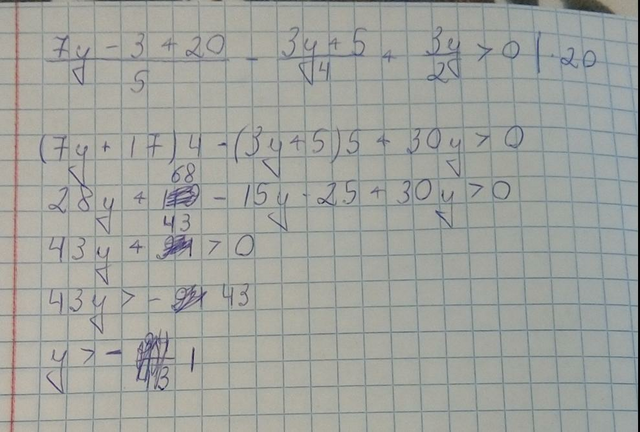 (7y - 3 + 20)/5 - (3y + 5)/4 + 3y/2 > 0 | · 20
(7y + 17)4 - (3y + 5)5 + 30y > 0
28y + 68 - 15y - 25 + 30y > 0
43y + 43 > 0
43y > - 43
y > - 1